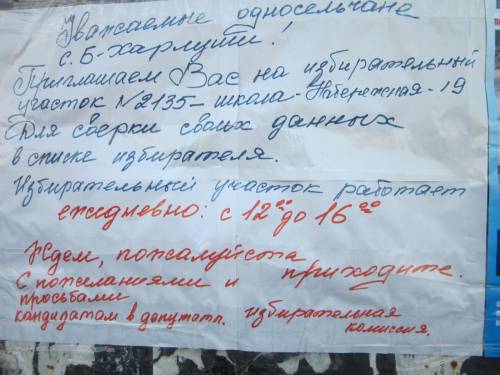 Уважаемые односельчане
с. Б-Харлузти!
Приглашаем Вас на избирательный
участок №2135 - школа - Набережная - 19
Для сверки своих данных
в списке избирателя.
Избирательный участок работает
ежедневно: с 12⁰⁰ до 16⁰⁰
Ждем, пожалуйста
приходите.
С пожеланиями и
просьбами
кандидатам в депутата.
избирательная
комиссия.